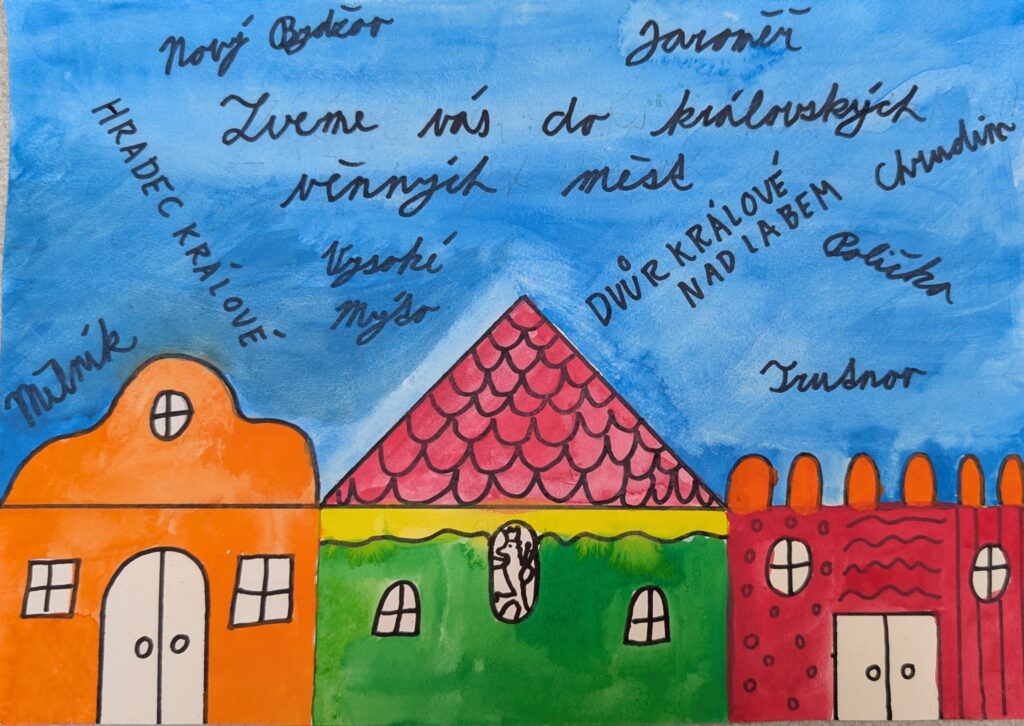 Nový Bydžov
Jaroměř
Zveme vás do královských
věnných měst
HRADEC KRÁLOVÉ
Chrudim
DVŮR KRÁLOVÉ
NAD LABEM
Polička
Vysoké
Mýto
Mělník
Trutnov